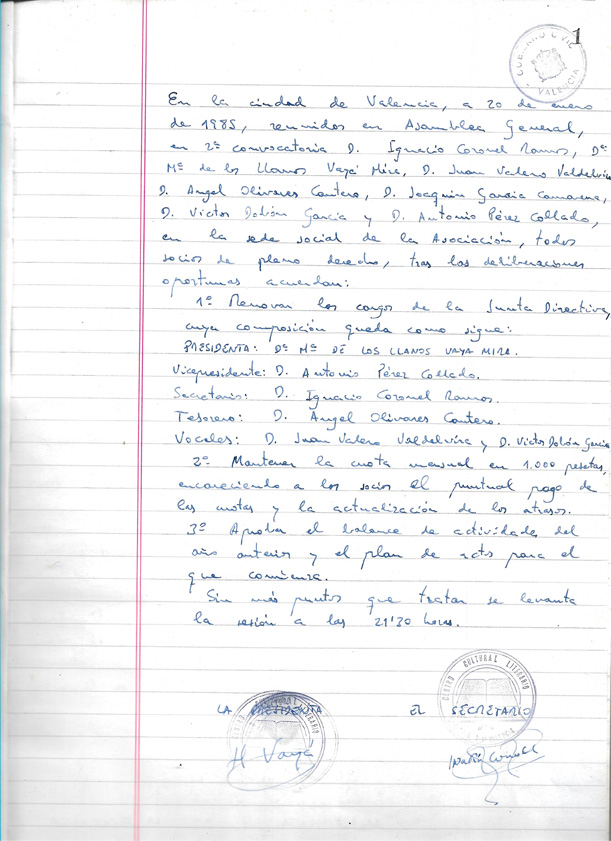 1
GOBIERNO CIVIL
VALENCIA
En la ciudad de Valencia, a 20 de enero
de 1985, reunidos en Asamblea General,
en 2ª convocatoria D. Ignacio Coronel Ramos, Dª
Mª de los Llanos Vayá Mira, D. Juan Valero Valdelvira
D. Angel Olivares Cantero, D. Joaquín García Camarena,
D. Victor Dobón García y D. Antonio Pérez Collado,
en la sede social de la Asociación, todos
socios de pleno derecho, tras las deliberaciones
oportunas acuerdan:
1º Renovar los cargos de la Junta Directiva,
cuya composición queda como sigue:
PRESIDENTA: Dª Mª DE LOS LLANOS VAYA MIRA.
Vicepresidente: D. Antonio Pérez Collado.
Secretario: D. Ignacio Coronel Ramos.
Tesorero: D. Angel Olivares Cantero.
Vocales: D. Juan Valero Valdelvira y D. Victor Dobón García
2º Mantener la cuota mensual en 1.000 pesetas,
encareciendo a los socios el puntual pago de
las cuotas y la actualización de los atrasos.
3º Aprobar el balance de actividades del
año anterior y el plan de actos para el
que comienza.
Sin más puntos que tratar se levanta
la sesión a las 21'30 horas.
CENTRO CULTURAL LITERARIO
LA PRESIDENTA EL SECRETARIO
Vayá